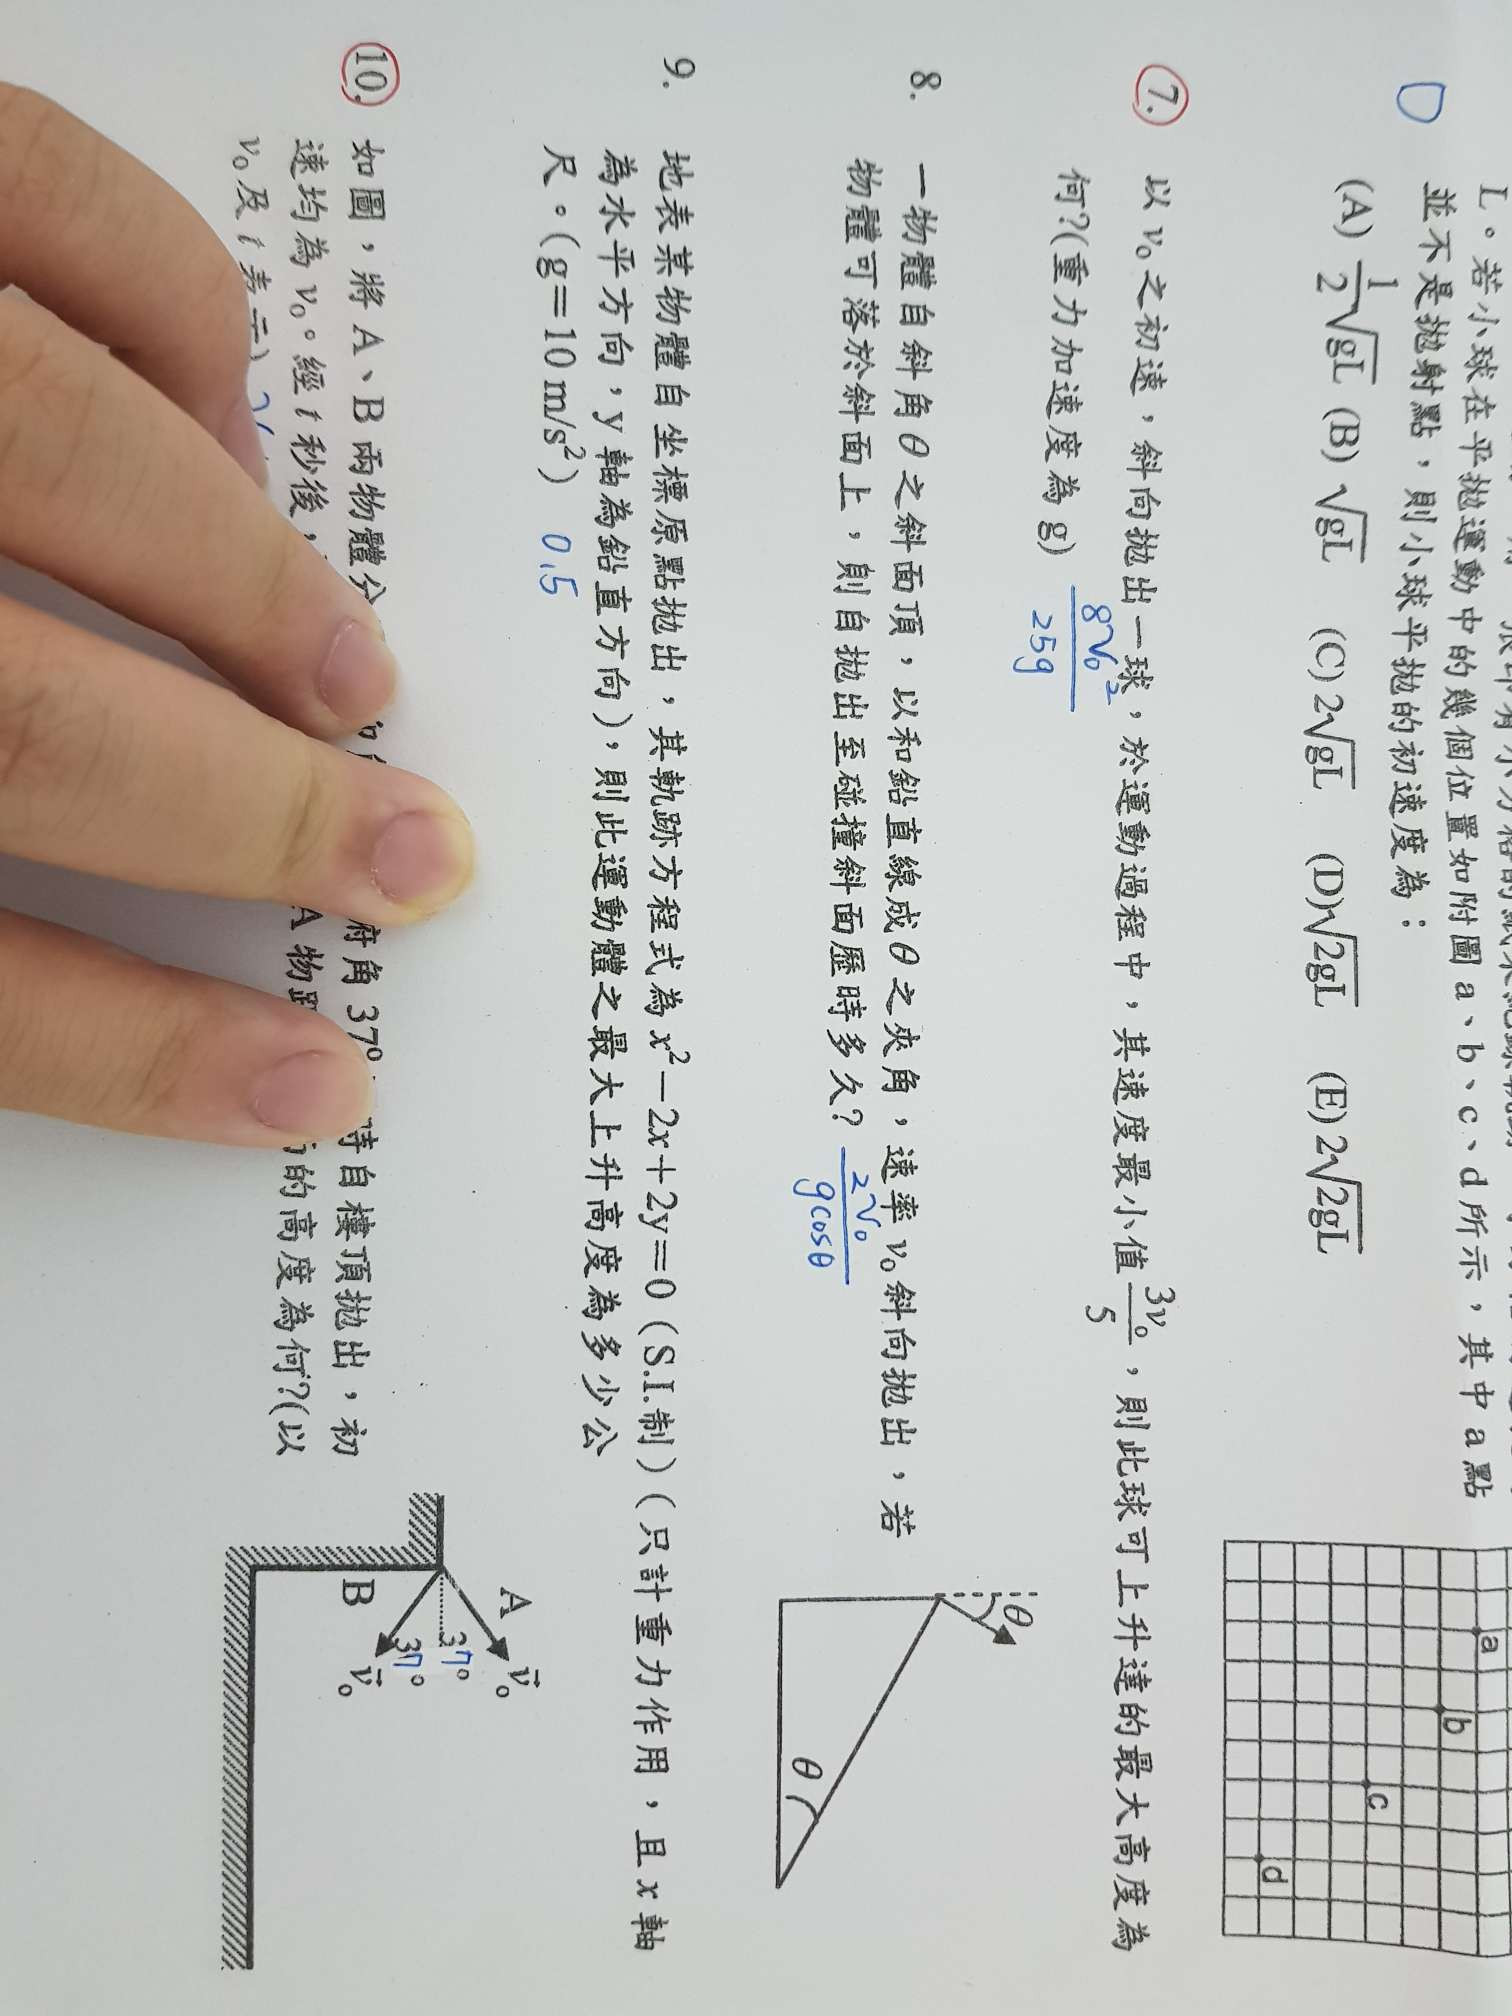 L。若小球在平拋運動中的幾個位置如附圖a、b、c、d所示，其中a點
並不是拋射點，則小球平拋的初速度為：
D
(A) 1/2√gL (B) √gL (C) 2√gL (D)√2gL (E) 2√2gL
a
b
c
d
7. 以 v₀ 之初速，斜向拋出一球，於運動過程中，其速度最小值 3v₀/5，則此球可上升達的最大高度為
何?(重力加速度為 g) 8v₀²/25g
8. 一物體自斜角θ之斜面頂，以和鉛直線成θ之夾角，速率 v₀ 斜向拋出，若
物體可落於斜面上，則自拋出至碰撞斜面歷時多久? 2v₀/gcosθ
θ
θ
9. 地表某物體自坐標原點拋出，其軌跡方程式為 x²－2x＋2y＝0 (S.I.制) (只計重力作用，且 x 軸
為水平方向，y 軸為鉛直方向)，則此運動體之最大上升高度為多少公
尺。(g＝10 m/s²) 0.5
10. 如圖，將 A、B 兩物體分 府角 37° 時自樓頂拋出，初
速均為 v₀。經 t 秒後， A 物距 的高度為何?(以
v₀及 t 表示)
A
v⃗₀
37°
37°
B
v⃗₀